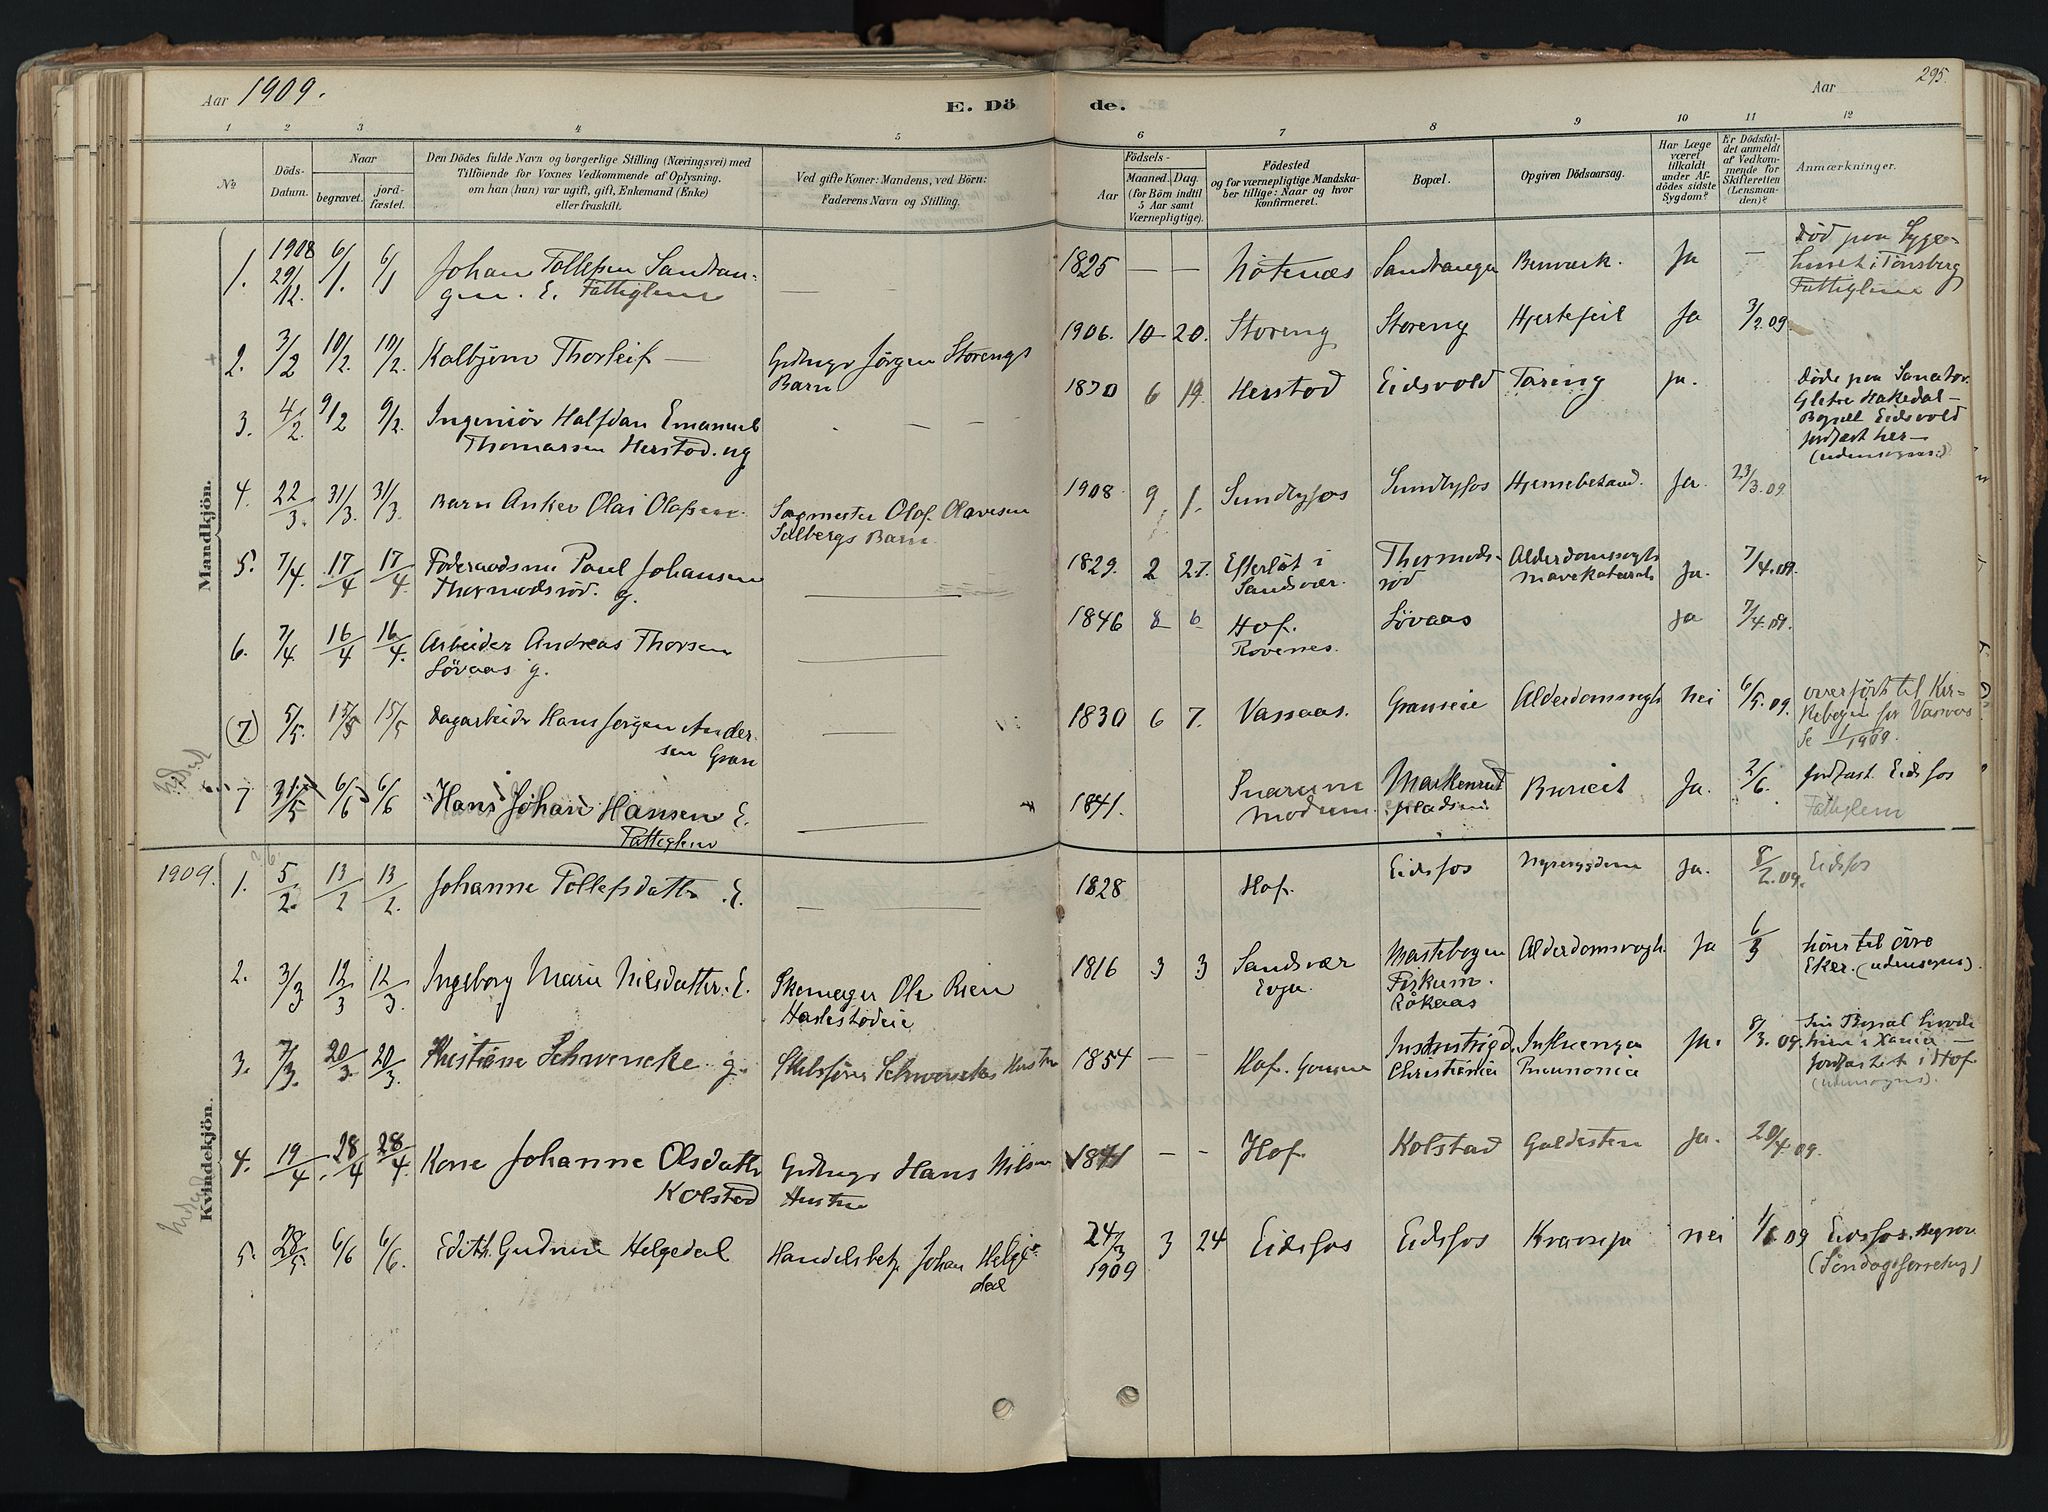 Aar 1909.
E. Dö
de.
Aar
295.
1 2 3 4 5 6 7 8 9 10 11 12
No
Döds-
Datum.
Naar
begravet.
jord-
fæstet.
Den Dödes fulde Navn og borgerlige Stilling (Næringsvei) med
Tilföiende for Voxnes Vedkommende af Oplysning,
om han (hun) var ugift, gift, Enkemand (Enke)
eller fraskilt.
Ved gifte Koner: Mandens, ved Börn:
Faderens Navn og Stilling.
Födsels-
Aar
Maaned. Dag.
(for Börn indtil
5 Aar samt
Værnepligtige).
Födested
og for værnepligtige Mandska-
ber tillige: Naar og hvor
konfirmeret.
Bopæl.
Opgiven Dödsaarsag.
Har Læge
været
tilkaldt
under Af-
dödes sidste
Sygdom?
Er Dödsfal-
det anmeldt
af Vedkom-
mende for
Skifteretten
(Lensman-
den)?
Anmærkninger.
Mandkjön.
1. 1908 29/12. 6/1. 6/1 Johan Tollefsen Sandvan-
gen. E. Fattiglem
1825 — — Sandvangen Benværk. Ja —
Död paa Syge-
huset i Tönsberg
Fattiglem
2. 3/2 10/2. 10/2. Kolbjörn Thorleif — Gdbrugr Jörgen Storengs
Barn
1906. 10 — 20. Storeng Storeng Hjertefeil Ja 3/2.09.
3. 4/2. 9/2 9/2. Ingeniör Halfdan Emanuel
Thomassen Herstod. ug
6 19. Herstod Eidsvold Tæring ja.
Döde paa Sanator.
Hakedal —
Bopæl Eidsvold
jordfæst her —
(udensogns)
4. 22/3. 31/3. 31/3. Barn Anker Olai Olafsen
Sagmester Olaf Olavesen
Solbergs Barn
1908. 9. 1. Sundbyfos Sundbyfos Hjernebetænd. Ja. 23/3.09.
5. 7/4. 17/4 17/4. Föderaadsm Paul Johansen
Thormodsröd. g.
1829. 2 27. Efteröt i
Sandsvær.
Thormods-
röd
Alderdomssvagh
Mavekatarrh
Ja. 7/4.09.
6. 7/4. 16/4 16/4. Arbeider Andreas Thorsen
Lövaas g.
1846 8 6 Hof.
Rovenes.
Lövaas ja 7/4.09.
(7) 5/5. 15/5 15/5 Dagarbeider Hans Jörgen Ander-
sen Gran
1830 6 7. Vassaas. Graneie Alderdomssvagh nei 6/5.09.
overfört til Kir-
kebogen for Vasaas
Se 1909.
7 31/5 6/6 6/6 Hans Johan Hansen E.
Fattiglem
1841. Snarum
Modum
Ja. 2/6. jordfæst. Eidsfos
Fattiglem
1909. Kvindekjön.
1. 5/2. 13/2 13/2. Johanne Tollefsdatter E.
1828 Hof. Eidsfos Nyresygdom Ja. 8/2.09. Eidsfos
2. 3/3 12/3 12/3 Ingeborg Marie Nilsdatter. E. Skomager Ole
1816 3 3 Sandsvær
Evju.
Mastebogen
Fiskum.
Rökaas
Alderdomssvagh. Ja 6/3
hörer til övre
Eker. (udensogns).
3. 7/3. 20/3. 20/3. Kristiane Schwencke g. Schwenckes Hustru
1854 — — Hof.
Christiania
Influenza
Pneumonia
Ja. 8/3.09.
jordfæstet i Hof
(udensogns).
4. 19/4. 28/4 28/4. Kone Johanne Olsdatter
Kolstad
Gdbrugr Hans Nilsen
Hustru
1841 — — Hof Kolstad Galdesten Ja. 20/4.09.
5. 28/5 6/6 6/6. Edith Gudrun Helgedal Handelsbetj Johan Helge-
dal
24/3
1909
3 24 Eidsfos Eidsfos nei 1/6 09 Eidsfos.
(Söndagsforretng)